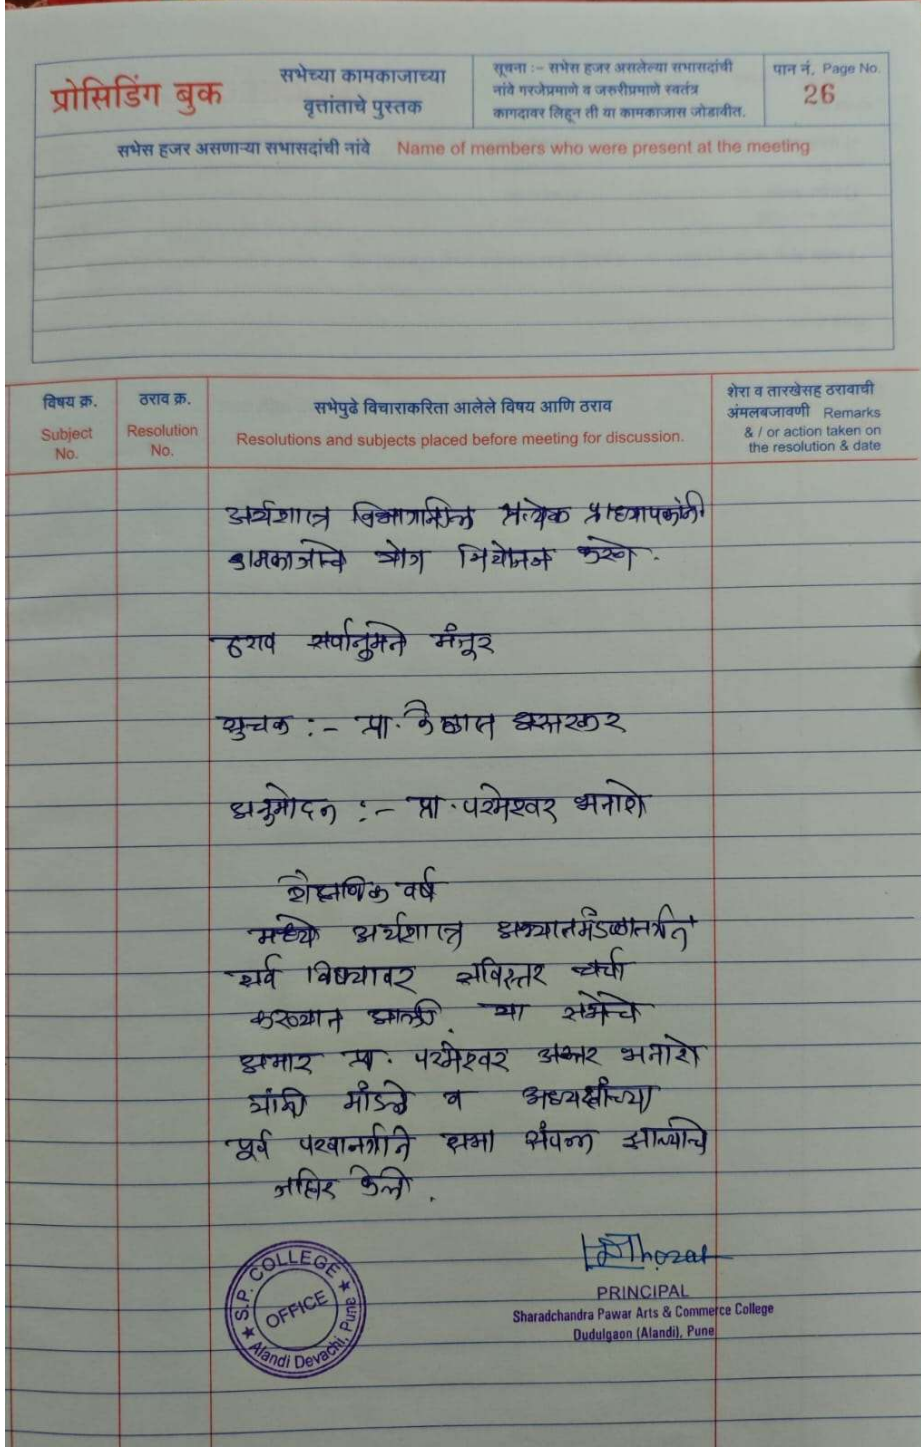 प्रोसिडिंग बुक
सभेच्या कामकाजाच्या
वृत्तांताचे पुस्तक
सूचना :- सभेस हजर असलेल्या सभासदांची
नांवे गरजेप्रमाणे व जरुरीप्रमाणे स्वतंत्र
कागदावर लिहून ती या कामकाजास जोडावीत.
पान नं. Page No.
26
सभेस हजर असणाऱ्या सभासदांची नांवे Name of members who were present at the meeting
विषय क्र.
Subject
No.
ठराव क्र.
Resolution
No.
सभेपुढे विचाराकरिता आलेले विषय आणि ठराव
Resolutions and subjects placed before meeting for discussion.
शेरा व तारखेसह ठरावाची
अंमलबजावणी Remarks
& / or action taken on
the resolution & date
अर्थशास्त्र विभागातील प्रत्येक प्राध्यापकांनी
कामकाजाचे योग्य नियोजन करणे.
ठराव सर्वानुमते मंजूर
सुचक :- प्रा. कैलास अस्तरकर
अनुमोदन :- प्रा. परमेश्वर भताशे
शैक्षणिक वर्ष
मध्ये अर्थशास्त्र अभ्यासमंडळातर्गत
सर्व विषयावर सविस्तर चर्चा
करण्यात आली. या सभेचे
आभार प्रा. परमेश्वर भताशे
यांनी मांडले व अध्यक्षांच्या
पूर्व परवानगीने सभा संपन्न झाल्याचे
जाहिर केले.
S.P. COLLEGE
OFFICE
Alandi Devachi, Pune
PRINCIPAL
Sharadchandra Pawar Arts & Commerce College
Dudulgaon (Alandi), Pune